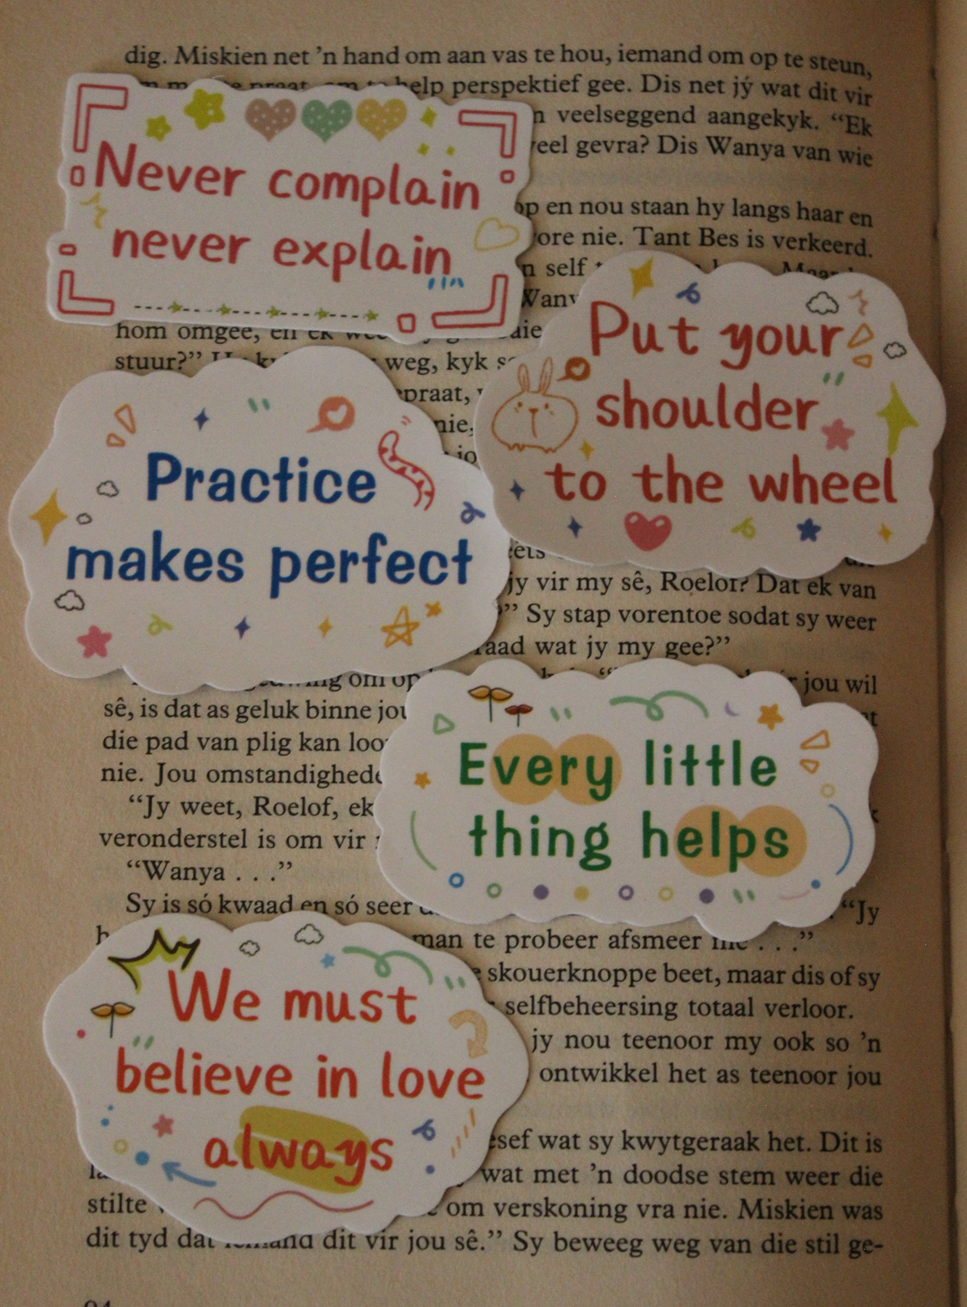 dig. Miskien net ’n hand om aan vas te hou, iemand om op te steun,
help perspektief gee. Dis net jý wat dit vir
veelseggend aangekyk. “Ek
veel gevra? Dis Wanya van wie
Never complain
never explain
op en nou staan hy langs haar en
nie. Tant Bes is verkeerd.
self
hom omgee, en ek
stuur?”
weg, kyk
Put your
shoulder
to the wheel
Practice
makes perfect
jy vir my sê, Roelof? Dat ek van
Sy stap vorentoe sodat sy weer
wat jy my gee?”
om op
jou wil
sê, is dat as geluk binne jou
die pad van plig kan
nie. Jou
“Jy weet, Roelof, ek
veronderstel is om vir
“Wanya . . .”
Every little
thing helps
Sy is só kwaad en só seer
“Jy
te probeer afsmeer nie . . .”
skouerknoppe beet, maar dis of sy
selfbeheersing totaal verloor.
jy nou teenoor my ook so ’n
ontwikkel het as teenoor jou
We must
believe in love
always
wat sy kwytgeraak het. Dit is
wat met ’n doodse stem weer die
stilte
om verskoning vra nie. Miskien was
dit tyd dat iemand dit vir jou sê.” Sy beweeg weg van die stil ge-